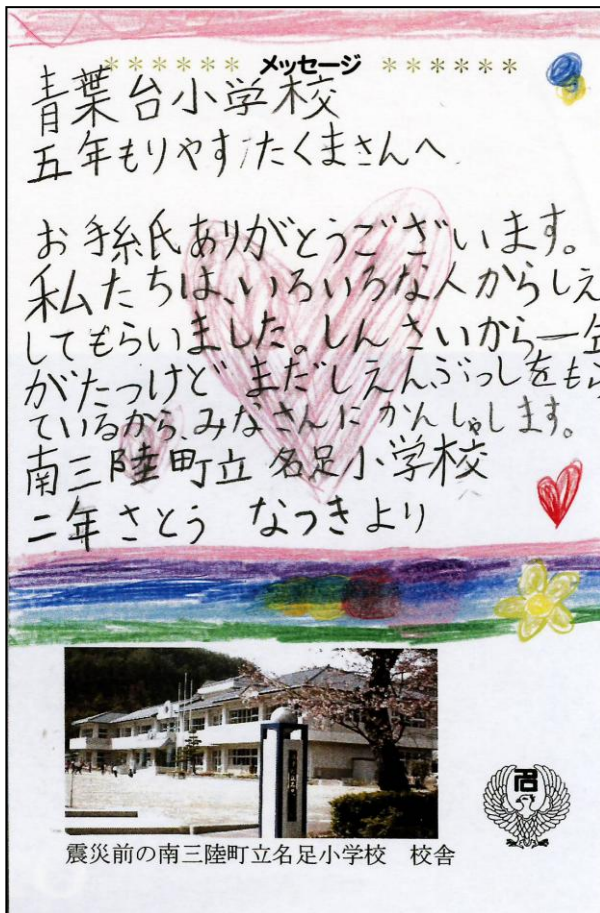 ****** メッセージ ******
青葉台小学校
五年もりやすたくまさんへ
お手紙ありがとうございます。
私たちは、いろいろな人からしえ
してもらいました。しんさいから一年
がたっけど まだしえんぶっしをもら
ているから、みなさんにかんしゃします。
南三陸町立 名足小学校
二年さとう なつきより
名
震災前の南三陸町立名足小学校 校舎